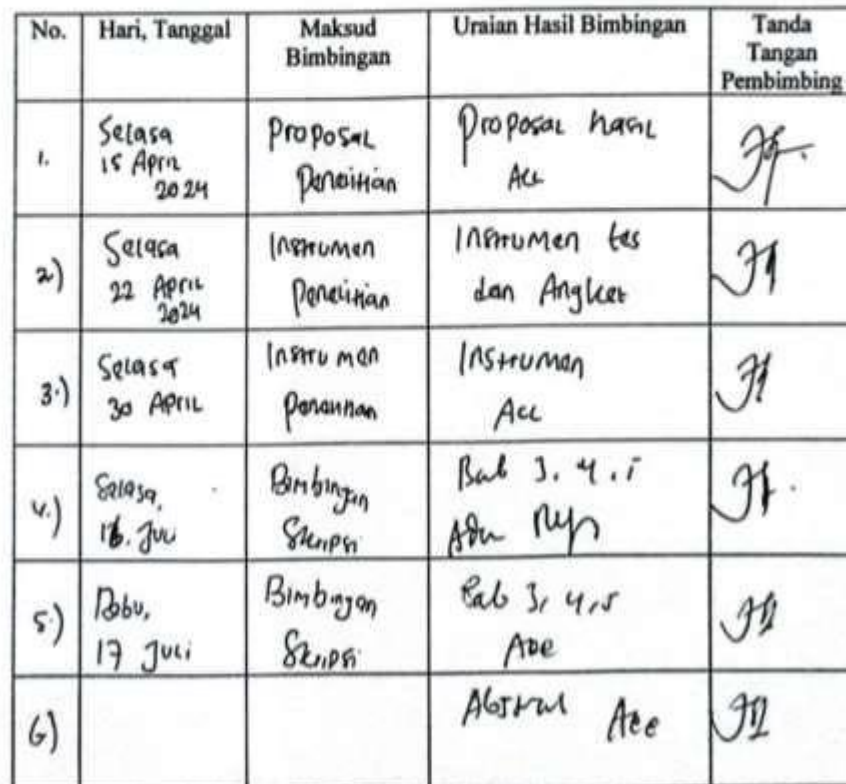 No.
Hari, Tanggal
Maksud
Bimbingan
Uraian Hasil Bimbingan
Tanda
Tangan
Pembimbing
1.
Selasa
15 April
2024
Proposal
Penelitian
Proposal hasil
Acc
2)
Selasa
22 April
2024
Instrumen
Penelitian
Instrumen tes
dan Angket
3.)
Selasa
30 April
Instrumen
Penelitian
Instrumen
Acc
4.)
Selasa,
16. Juli
Bimbingan
Skripsi
Bab 3. 4.
5.)
Rabu,
17 Juli
Bimbingan
Skripsi
Bab 3, 4, 5
Acc
6)
Abstrak Acc